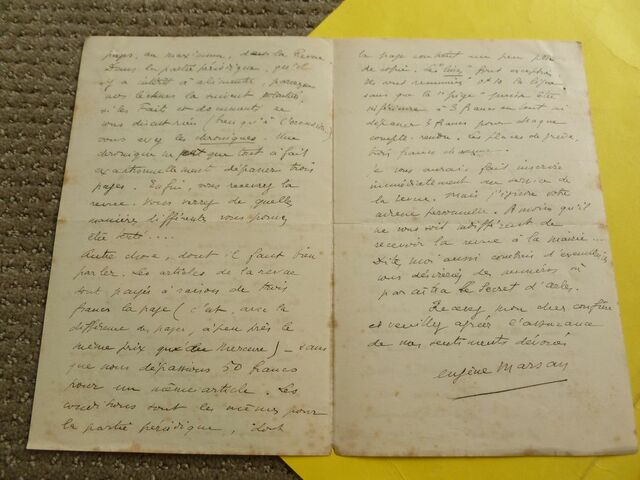 pages, au maximum, dans la Revue.
Dans la partie périodique, qu'il
y a intérêt à alimenter, puisque
nos lecteurs la suivent
si les Faits et documents ne
vous disent rien (bien qu'à l'occasion)
vous avez les chroniques. Une
chronique ne peut que tout à fait
exceptionnellement dépasser trois
pages. Enfin, vous recevrez la
revue. Vous verrez de quelles
manières différentes vous pouvez
être
Autre chose, dont il faut bien
parler. Les articles de la revue
sont payés à raison de trois
francs la page (c'est, avec la
différence des pages, à peu près le
même prix que au Mercure) – sans
que nous dépassions 50 francs
pour un même article. Les
conditions sont les mêmes pour
la partie périodique, dont
la page contient un peu plus
de copie. Les font exception
ils sont la ligne
sans que la "pige" puisse être
inférieure à 3 francs
dépasser 3 francs pour chaque
compte-rendu. Les
trois francs chacune.
Je vous aurais fait inscrire
immédiatement au service de
la revue. Mais j'ignore votre
adresse personnelle. A moins qu'il
ne vous soit indifférent de
recevoir la revue à la mairie...
Dites moi aussi combien d'exemplaires
vous désirerez du numéro où
paraîtra le Secret d'
Recevez mon cher confrère
et veuillez agréer l'assurance
de nos sentiments dévoués
eugène Marsan